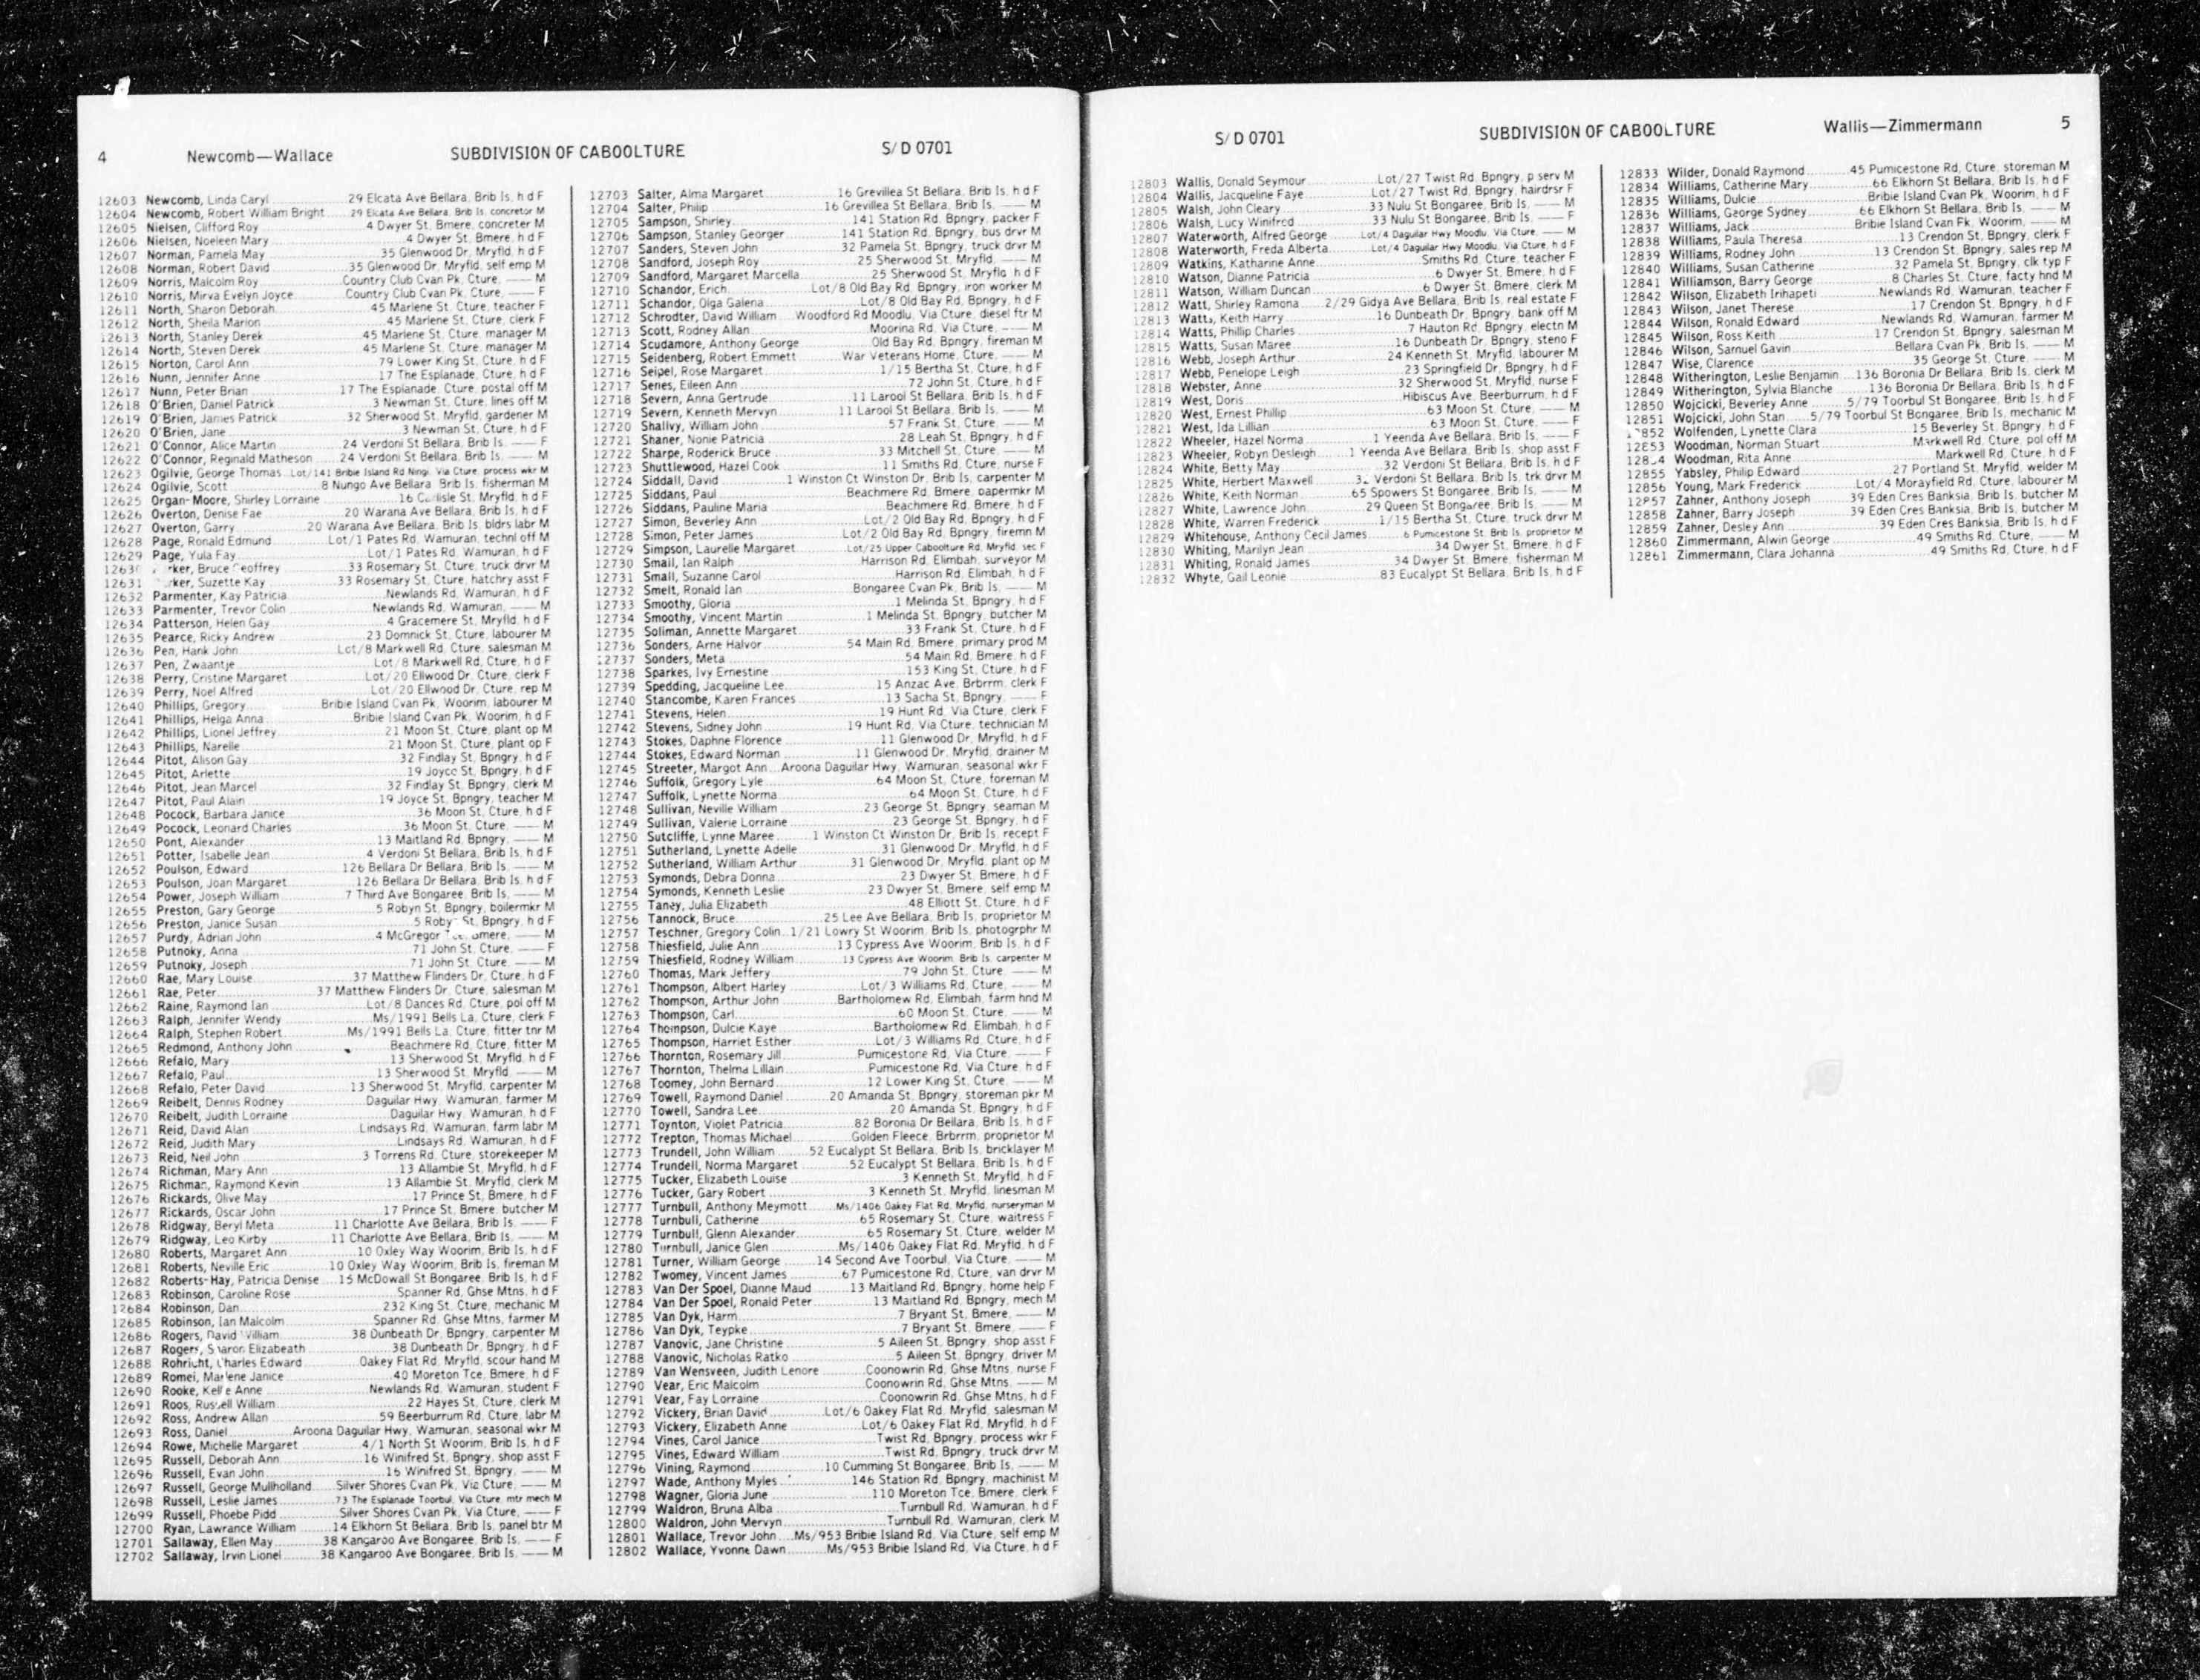 4 Newcomb—Wallace SUBDIVISION OF CABOOLTURE S/D 0701
12603 Newcomb, Linda Caryl 29 Elcata Ave Bellara, Brib Is, h d F
12604 Newcomb, Robert William Bright 29 Elcata Ave Bellara, Brib Is, concretor M
12605 Nielsen, Clifford Roy 4 Dwyer St, Bmere, concreter M
12606 Nielsen, Noeleen Mary 4 Dwyer St, Bmere, h d F
12607 Norman, Pamela May 35 Glenwood Dr, Mryfld, h d F
12608 Norman, Robert David 35 Glenwood Dr, Mryfld, self emp M
12609 Norris, Malcolm Roy Country Club Cvan Pk, Cture, —— M
12610 Norris, Mirva Evelyn Joyce Country Club Cvan Pk, Cture, —— F
12611 North, Sharon Deborah 45 Marlene St, Cture, teacher F
12612 North, Sheila Marion 45 Marlene St, Cture, clerk F
12613 North, Stanley Derek 45 Marlene St, Cture, manager M
12614 North, Steven Derek 45 Marlene St, Cture, manager M
12615 Norton, Carol Ann 79 Lower King St, Cture, h d F
12616 Nunn, Jennifer Anne 17 The Esplanade, Cture, h d F
12617 Nunn, Peter Brian 17 The Esplanade, Cture, postal off M
12618 O'Brien, Daniel Patrick 3 Newman St, Cture, lines off M
12619 O'Brien, James Patrick 32 Sherwood St, Mryfld, gardener M
12620 O'Brien, Jane 3 Newman St, Cture, h d F
12621 O'Connor, Alice Martin 24 Verdoni St Bellara, Brib Is, —— F
12622 O'Connor, Reginald Matheson 24 Verdoni St Bellara, Brib Is, —— M
12623 Ogilvie, George Thomas Lot/141 Bribie Island Rd Ningi, Via Cture, process wkr M
12624 Ogilvie, Scott 8 Nungo Ave Bellara, Brib Is, fisherman M
12625 Organ-Moore, Shirley Lorraine 16 St, Mryfld, h d F
12626 Overton, Denise Fae 20 Warana Ave Bellara, Brib Is, h d F
12627 Overton, Garry 20 Warana Ave Bellara, Brib Is, bldrs labr M
12628 Page, Ronald Edmund Lot/1 Pates Rd, Wamuran, technl off M
12629 Page, Yula Fay Lot/1 Pates Rd, Wamuran, h d F
1263 rker, Bruce eoffrey 33 Rosemary St, Cture, truck drvr M
12631 rker, Suzette Kay 33 Rosemary St, Cture, hatchry asst F
12632 Parmenter, Kay Patricia Newlands Rd, Wamuran, h d F
12633 Parmenter, Trevor Colin Newlands Rd, Wamuran, —— M
12634 Patterson, Helen Gay 4 Gracemere St, Mryfld, h d F
12635 Pearce, Ricky Andrew 23 Domnick St, Cture, labourer M
12636 Pen, Hank John Lot/8 Markwell Rd, Cture, salesman M
12637 Pen, Zwaantje Lot/8 Markwell Rd, Cture, h d F
12638 Perry, Cristine Margaret Lot/20 Ellwood Dr, Cture, clerk F
12639 Perry, Noel Alfred Lot/20 Ellwood Dr, Cture, rep M
12640 Phillips, Gregory Bribie Island Cvan Pk, Woorim, labourer M
12641 Phillips, Helga Anna Bribie Island Cvan Pk, Woorim, h d F
12642 Phillips, Lionel Jeffrey 21 Moon St, Cture, plant op M
12643 Phillips, Narelle 21 Moon St, Cture, plant op F
12644 Pitot, Alison Gay 32 Findlay St, Bpngry, h d F
12645 Pitot, Arlette 19 Joyce St, Bpngry, h d F
12646 Pitot, Jean Marcel 32 Findlay St, Bpngry, clerk M
12647 Pitot, Paul Alain 19 Joyce St, Bpngry, teacher M
12648 Pocock, Barbara Janice 36 Moon St, Cture, h d F
12649 Pocock, Leonard Charles 36 Moon St, Cture, —— M
12650 Pont, Alexander 13 Maitland Rd, Bpngry, —— M
12651 Potter, Isabelle Jean 4 Verdoni St Bellara, Brib Is, h d F
12652 Poulson, Edward 126 Bellara Dr Bellara, Brib Is, —— M
12653 Poulson, Joan Margaret 126 Bellara Dr Bellara, Brib Is, h d F
12654 Power, Joseph William 7 Third Ave Bongaree, Brib Is, —— M
12655 Preston, Gary George 5 Robyn St, Bpngry, boilermkr M
12656 Preston, Janice Susan 5 Roby St, Bpngry, h d F
12657 Purdy, Adrian John 4 McGregor Bmere, —— M
12658 Putnoky, Anna 71 John St, Cture, —— F
12659 Putnoky, Joseph 71 John St, Cture, —— M
12660 Rae, Mary Louise 37 Matthew Flinders Dr, Cture, h d F
12661 Rae, Peter 37 Matthew Flinders Dr, Cture, salesman M
12662 Raine, Raymond Ian Lot/8 Dances Rd, Cture, pol off M
12663 Ralph, Jennifer Wendy Ms/1991 Bells La, Cture, clerk F
12664 Ralph, Stephen Robert Ms/1991 Bells La, Cture, fitter tnr M
12665 Redmond, Anthony John Beachmere Rd, Cture, fitter M
12666 Refalo, Mary 13 Sherwood St, Mryfld, h d F
12667 Refalo, Paul 13 Sherwood St, Mryfld, —— M
12668 Refalo, Peter David 13 Sherwood St, Mryfld, carpenter M
12669 Reibelt, Dennis Rodney Daguilar Hwy, Wamuran, farmer M
12670 Reibelt, Judith Lorraine Daguilar Hwy, Wamuran, h d F
12671 Reid, David Alan Lindsays Rd, Wamuran, farm labr M
12672 Reid, Judith Mary Lindsays Rd, Wamuran, h d F
12673 Reid, Neil John 3 Torrens Rd, Cture, storekeeper M
12674 Richman, Mary Ann 13 Allambie St, Mryfld, h d F
12675 Richman, Raymond Kevin 13 Allambie St, Mryfld, clerk M
12676 Rickards, Olive May 17 Prince St, Bmere, h d F
12677 Rickards, Oscar John 17 Prince St, Bmere, butcher M
12678 Ridgway, Beryl Meta 11 Charlotte Ave Bellara, Brib Is, —— F
12679 Ridgway, Leo Kirby 11 Charlotte Ave Bellara, Brib Is, —— M
12680 Roberts, Margaret Ann 10 Oxley Way Woorim, Brib Is, h d F
12681 Roberts, Neville Eric 10 Oxley Way Woorim, Brib Is, fireman M
12682 Roberts-Hay, Patricia Denise 15 McDowall St Bongaree, Brib Is, h d F
12683 Robinson, Caroline Rose Spanner Rd, Ghse Mtns, h d F
12684 Robinson, Dan 232 King St, Cture, mechanic M
12685 Robinson, Ian Malcolm Spanner Rd, Ghse Mtns, farmer M
12686 Rogers, David William 38 Dunbeath Dr, Bpngry, carpenter M
12687 Rogers, Sharon Elizabeath 38 Dunbeath Dr, Bpngry, h d F
12688 Rohricht, Charles Edward Oakey Flat Rd, Mryfld, scour hand M
12689 Romei, Marlene Janice 40 Moreton Tce, Bmere, h d F
12690 Rooke, Kellie Anne Newlands Rd, Wamuran, student F
12691 Roos, Russell William 22 Hayes St, Cture, clerk M
12692 Ross, Andrew Allan 59 Beerburrum Rd, Cture, labr M
12693 Ross, Daniel Aroona Daguilar Hwy, Wamuran, seasonal wkr M
12694 Rowe, Michelle Margaret 4/1 North St Woorim, Brib Is, h d F
12695 Russell, Deborah Ann 16 Winifred St, Bpngry, shop asst F
12696 Russell, Evan John 16 Winifred St, Bpngry, —— M
12697 Russell, George Mullholland Silver Shores Cvan Pk, Via Cture, —— M
12698 Russell, Leslie James 73 The Esplanade Toorbul, Via Cture, mtr mech M
12699 Russell, Phoebe Pidd Silver Shores Cvan Pk, Via Cture, —— F
12700 Ryan, Lawrance William 14 Elkhorn St Bellara, Brib Is, panel btr M
12701 Sallaway, Ellen May 38 Kangaroo Ave Bongaree, Brib Is, —— F
12702 Sallaway, Irvin Lionel 38 Kangaroo Ave Bongaree, Brib Is, —— M
12703 Salter, Alma Margaret 16 Grevillea St Bellara, Brib Is, h d F
12704 Salter, Philip 16 Grevillea St Bellara, Brib Is, —— M
12705 Sampson, Shirley 141 Station Rd, Bpngry, packer F
12706 Sampson, Stanley Georger 141 Station Rd, Bpngry, bus drvr M
12707 Sanders, Steven John 32 Pamela St, Bpngry, truck drvr M
12708 Sandford, Joseph Roy 25 Sherwood St, Mryfld, —— M
12709 Sandford, Margaret Marcella 25 Sherwood St, Mryfld, h d F
12710 Schandor, Erich Lot/8 Old Bay Rd, Bpngry, iron worker M
12711 Schandor, Olga Galena Lot/8 Old Bay Rd, Bpngry, h d F
12712 Schrodter, David William Woodford Rd Moodlu, Via Cture, diesel ftr M
12713 Scott, Rodney Allan Moorina Rd, Via Cture, —— M
12714 Scudamore, Anthony George Old Bay Rd, Bpngry, fireman M
12715 Seidenberg, Robert Emmett War Veterans Home, Cture, —— M
12716 Seipel, Rose Margaret 1/15 Bertha St, Cture, h d F
12717 Senes, Eileen Ann 72 John St, Cture, h d F
12718 Severn, Anna Gertrude 11 Larool St Bellara, Brib Is, h d F
12719 Severn, Kenneth Mervyn 11 Larool St Bellara, Brib Is, —— M
12720 Shallvy, William John 57 Frank St, Cture, —— M
12721 Shaner, Nonie Patricia 28 Leah St, Bpngry, h d F
12722 Sharpe, Roderick Bruce 33 Mitchell St, Cture, —— M
12723 Shuttlewood, Hazel Cook 11 Smiths Rd, Cture, nurse F
12724 Siddall, David 1 Winston Ct Winston Dr, Brib Is, carpenter M
12725 Siddans, Paul Beachmere Rd, Bmere, papermkr M
12726 Siddans, Pauline Maria Beachmere Rd, Bmere, h d F
12727 Simon, Beverley Ann Lot/2 Old Bay Rd, Bpngry, h d F
12728 Simon, Peter James Lot/2 Old Bay Rd, Bpngry, firemn M
12729 Simpson, Laurelle Margaret Lot/25 Upper Caboolture Rd, Mryfld, sec F
12730 Small, Ian Ralph Harrison Rd, Elimbah, surveyor M
12731 Small, Suzanne Carol Harrison Rd, Elimbah, h d F
12732 Smelt, Ronald Ian Bongaree Cvan Pk, Brib Is, —— M
12733 Smoothy, Gloria 1 Melinda St, Bpngry, h d F
12734 Smoothy, Vincent Martin 1 Melinda St, Bpngry, butcher M
12735 Soliman, Annette Margaret 33 Frank St, Cture, h d F
12736 Sonders, Arne Halvor 54 Main Rd, Bmere, primary prod M
12737 Sonders, Meta 54 Main Rd, Bmere, h d F
12738 Sparkes, Ivy Ernestine 153 King St, Cture, h d F
12739 Spedding, Jacqueline Lee 15 Anzac Ave, Brbrrm, clerk F
12740 Stancombe, Karen Frances 13 Sacha St, Bpngry, —— F
12741 Stevens, Helen 19 Hunt Rd, Via Cture, clerk F
12742 Stevens, Sidney John 19 Hunt Rd, Via Cture, technician M
12743 Stokes, Daphne Florence 11 Glenwood Dr, Mryfld, h d F
12744 Stokes, Edward Norman 11 Glenwood Dr, Mryfld, drainer M
12745 Streeter, Margot Ann Aroona Daguilar Hwy, Wamuran, seasonal wkr F
12746 Suffolk, Gregory Lyle 64 Moon St, Cture, foreman M
12747 Suffolk, Lynette Norma 64 Moon St, Cture, h d F
12748 Sullivan, Neville William 23 George St, Bpngry, seaman M
12749 Sullivan, Valerie Lorraine 23 George St, Bpngry, h d F
12750 Sutcliffe, Lynne Maree 1 Winston Ct Winston Dr, Brib Is, recept F
12751 Sutherland, Lynette Adelle 31 Glenwood Dr, Mryfld, h d F
12752 Sutherland, William Arthur 31 Glenwood Dr, Mryfld, plant op M
12753 Symonds, Debra Donna 23 Dwyer St, Bmere, h d F
12754 Symonds, Kenneth Leslie 23 Dwyer St, Bmere, self emp M
12755 Taney, Julia Elizabeth 48 Elliott St, Cture, h d F
12756 Tannock, Bruce 25 Lee Ave Bellara, Brib Is, proprietor M
12757 Teschner, Gregory Colin 1/21 Lowry St Woorim, Brib Is, photogrphr M
12758 Thiesfield, Julie Ann 13 Cypress Ave Woorim, Brib Is, h d F
12759 Thiesfield, Rodney William 13 Cypress Ave Woorim, Brib Is, carpenter M
12760 Thomas, Mark Jeffery 79 John St, Cture, —— M
12761 Thompson, Albert Harley Lot/3 Williams Rd, Cture, —— M
12762 Thompson, Arthur John Bartholomew Rd, Elimbah, farm hnd M
12763 Thompson, Carl 60 Moon St, Cture, —— M
12764 Thompson, Dulcie Kaye Bartholomew Rd, Elimbah, h d F
12765 Thompson, Harriet Esther Lot/3 Williams Rd, Cture, h d F
12766 Thornton, Rosemary Jill Pumicestone Rd, Via Cture, —— F
12767 Thornton, Thelma Lillain Pumicestone Rd, Via Cture, h d F
12768 Toomey, John Bernard 12 Lower King St, Cture, —— M
12769 Towell, Raymond Daniel 20 Amanda St, Bpngry, storeman pkr M
12770 Towell, Sandra Lee 20 Amanda St, Bpngry, h d F
12771 Toynton, Violet Patricia 82 Boronia Dr Bellara, Brib Is, h d F
12772 Trepton, Thomas Michael Golden Fleece, Brbrrm, proprietor M
12773 Trundell, John William 52 Eucalypt St Bellara, Brib Is, bricklayer M
12774 Trundell, Norma Margaret 52 Eucalypt St Bellara, Brib Is, h d F
12775 Tucker, Elizabeth Louise 3 Kenneth St, Mryfld, h d F
12776 Tucker, Gary Robert 3 Kenneth St, Mryfld, linesman M
12777 Turnbull, Anthony Meymott Ms/1406 Oakey Flat Rd, Mryfld, nurseryman M
12778 Turnbull, Catherine 65 Rosemary St, Cture, waitress F
12779 Turnbull, Glenn Alexander 65 Rosemary St, Cture, welder M
12780 Turnbull, Janice Glen Ms/1406 Oakey Flat Rd, Mryfld, h d F
12781 Turner, William George 14 Second Ave Toorbul, Via Cture, —— M
12782 Twomey, Vincent James 67 Pumicestone Rd, Cture, van drvr M
12783 Van Der Spoel, Dianne Maud 13 Maitland Rd, Bpngry, home help F
12784 Van Der Spoel, Ronald Peter 13 Maitland Rd, Bpngry, mech M
12785 Van Dyk, Harm 7 Bryant St, Bmere, —— M
12786 Van Dyk, Teypke 7 Bryant St, Bmere, —— F
12787 Vanovic, Jane Christine 5 Aileen St, Bpngry, shop asst F
12788 Vanovic, Nicholas Ratko 5 Aileen St, Bpngry, driver M
12789 Van Wensveen, Judith Lenore Coonowrin Rd, Ghse Mtns, nurse F
12790 Vear, Eric Malcolm Coonowrin Rd, Ghse Mtns, —— M
12791 Vear, Fay Lorraine Coonowrin Rd, Ghse Mtns, h d F
12792 Vickery, Brian David Lot/6 Oakey Flat Rd, Mryfld, salesman M
12793 Vickery, Elizabeth Anne Lot/6 Oakey Flat Rd, Mryfld, h d F
12794 Vines, Carol Janice Twist Rd, Bpngry, process wkr F
12795 Vines, Edward William Twist Rd, Bpngry, truck drvr M
12796 Vining, Raymond 10 Cumming St Bongaree, Brib Is, —— M
12797 Wade, Anthony Myles 146 Station Rd, Bpngry, machinist M
12798 Wagner, Gloria June 110 Moreton Tce, Bmere, clerk F
12799 Waldron, Bruna Alba Turnbull Rd, Wamuran, h d F
12800 Waldron, John Mervyn Turnbull Rd, Wamuran, clerk M
12801 Wallace, Trevor John Ms/953 Bribie Island Rd, Via Cture, self emp M
12802 Wallace, Yvonne Dawn Ms/953 Bribie Island Rd, Via Cture, h d F
S/D 0701 SUBDIVISION OF CABOOLTURE Wallis—Zimmermann 5
12803 Wallis, Donald Seymour Lot/27 Twist Rd, Bpngry, p serv M
12804 Wallis, Jacqueline Faye Lot/27 Twist Rd, Bpngry, hairdrsr F
12805 Walsh, John Cleary 33 Nulu St Bongaree, Brib Is, —— M
12806 Walsh, Lucy Winifred 33 Nulu St Bongaree, Brib Is, —— F
12807 Waterworth, Alfred George Lot/4 Daguilar Hwy Moodlu, Via Cture, —— M
12808 Waterworth, Freda Alberta Lot/4 Daguilar Hwy Moodlu, Via Cture, h d F
12809 Watkins, Katharine Anne Smiths Rd, Cture, teacher F
12810 Watson, Dianne Patricia 6 Dwyer St, Bmere, h d F
12811 Watson, William Duncan 6 Dwyer St, Bmere, clerk M
12812 Watt, Shirley Ramona 2/29 Gidya Ave Bellara, Brib Is, real estate F
12813 Watts, Keith Harry 16 Dunbeath Dr, Bpngry, bank off M
12814 Watts, Phillip Charles 7 Hauton Rd, Bpngry, electn M
12815 Watts, Susan Maree 16 Dunbeath Dr, Bpngry, steno F
12816 Webb, Joseph Arthur 24 Kenneth St, Mryfld, labourer M
12817 Webb, Penelope Leigh 23 Springfield Dr, Bpngry, h d F
12818 Webster, Anne 32 Sherwood St, Mryfld, nurse F
12819 West, Doris Hibiscus Ave, Beerburrum, h d F
12820 West, Ernest Phillip 63 Moon St, Cture, —— M
12821 West, Ida Lillian 63 Moon St, Cture, —— F
12822 Wheeler, Hazel Norma 1 Yeenda Ave Bellara, Brib Is, —— F
12823 Wheeler, Robyn Desleigh 1 Yeenda Ave Bellara, Brib Is, shop asst F
12824 White, Betty May 32 Verdoni St Bellara, Brib Is, h d F
12825 White, Herbert Maxwell 3 Verdoni St Bellara, Brib Is, trk drvr M
12826 White, Keith Norman 65 Spowers St Bongaree, Brib Is, —— M
12827 White, Lawrence John 29 Queen St Bongaree, Brib Is, —— M
12828 White, Warren Frederick 1/15 Bertha St, Cture, truck drvr M
12829 Whitehouse, Anthony Cecil James 6 Pumicestone St, Brib Is, proprietor M
12830 Whiting, Marilyn Jean 34 Dwyer St, Bmere, h d F
12831 Whiting, Ronald James 34 Dwyer St, Bmere, fisherman M
12832 Whyte, Gail Leonie 83 Eucalypt St Bellara, Brib Is, h d F
12833 Wilder, Donald Raymond 45 Pumicestone Rd, Cture, storeman M
12834 Williams, Catherine Mary 66 Elkhorn St Bellara, Brib Is, h d F
12835 Williams, Dulcie Bribie Island Cvan Pk, Woorim, h d F
12836 Williams, George Sydney 66 Elkhorn St Bellara, Brib Is, —— M
12837 Williams, Jack Bribie Island Cvan Pk, Woorim, —— M
12838 Williams, Paula Theresa 13 Crendon St, Bpngry, clerk F
12839 Williams, Rodney John 13 Crendon St, Bpngry, sales rep M
12840 Williams, Susan Catherine 32 Pamela St, Bpngry, clk typ F
12841 Williamson, Barry George 8 Charles St, Cture, facty hnd M
12842 Wilson, Elizabeth Irihapeti Newlands Rd, Wamuran, teacher F
12843 Wilson, Janet Therese 17 Crendon St, Bpngry, h d F
12844 Wilson, Ronald Edward Newlands Rd, Wamuran, farmer M
12845 Wilson, Ross Keith 17 Crendon St, Bpngry, salesman M
12846 Wilson, Samuel Gavin Bellara Cvan Pk, Brib Is, —— M
12847 Wise, Clarence 35 George St, Cture, —— M
12848 Witherington, Leslie Benjamin 136 Boronia Dr Bellara, Brib Is, clerk M
12849 Witherington, Sylvia Blanche 136 Boronia Dr Bellara, Brib Is, h d F
12850 Wojcicki, Beverley Anne 5/79 Toorbul St Bongaree, Brib Is, h d F
12851 Wojcicki, John Stan 5/79 Toorbul St Bongaree, Brib Is, mechanic M
852 Wolfenden, Lynette Clara 15 Beverley St, Bpngry, h d F
12853 Woodman, Norman Stuart Markwell Rd, Cture, pol off M
128 4 Woodman, Rita Anne Markwell Rd, Cture, h d F
12855 Yabsley, Philip Edward 27 Portland St, Mryfld, welder M
12856 Young, Mark Frederick Lot/4 Morayfield Rd, Cture, labourer M
12857 Zahner, Anthony Joseph 39 Eden Cres Banksia, Brib Is, butcher M
12858 Zahner, Barry Joseph 39 Eden Cres Banksia, Brib Is, butcher M
12859 Zahner, Desley Ann 39 Eden Cres Banksia, Brib Is, h d F
12860 Zimmermann, Alwin George 49 Smiths Rd, Cture, —— M
12861 Zimmermann, Clara Johanna 49 Smiths Rd, Cture, h d F